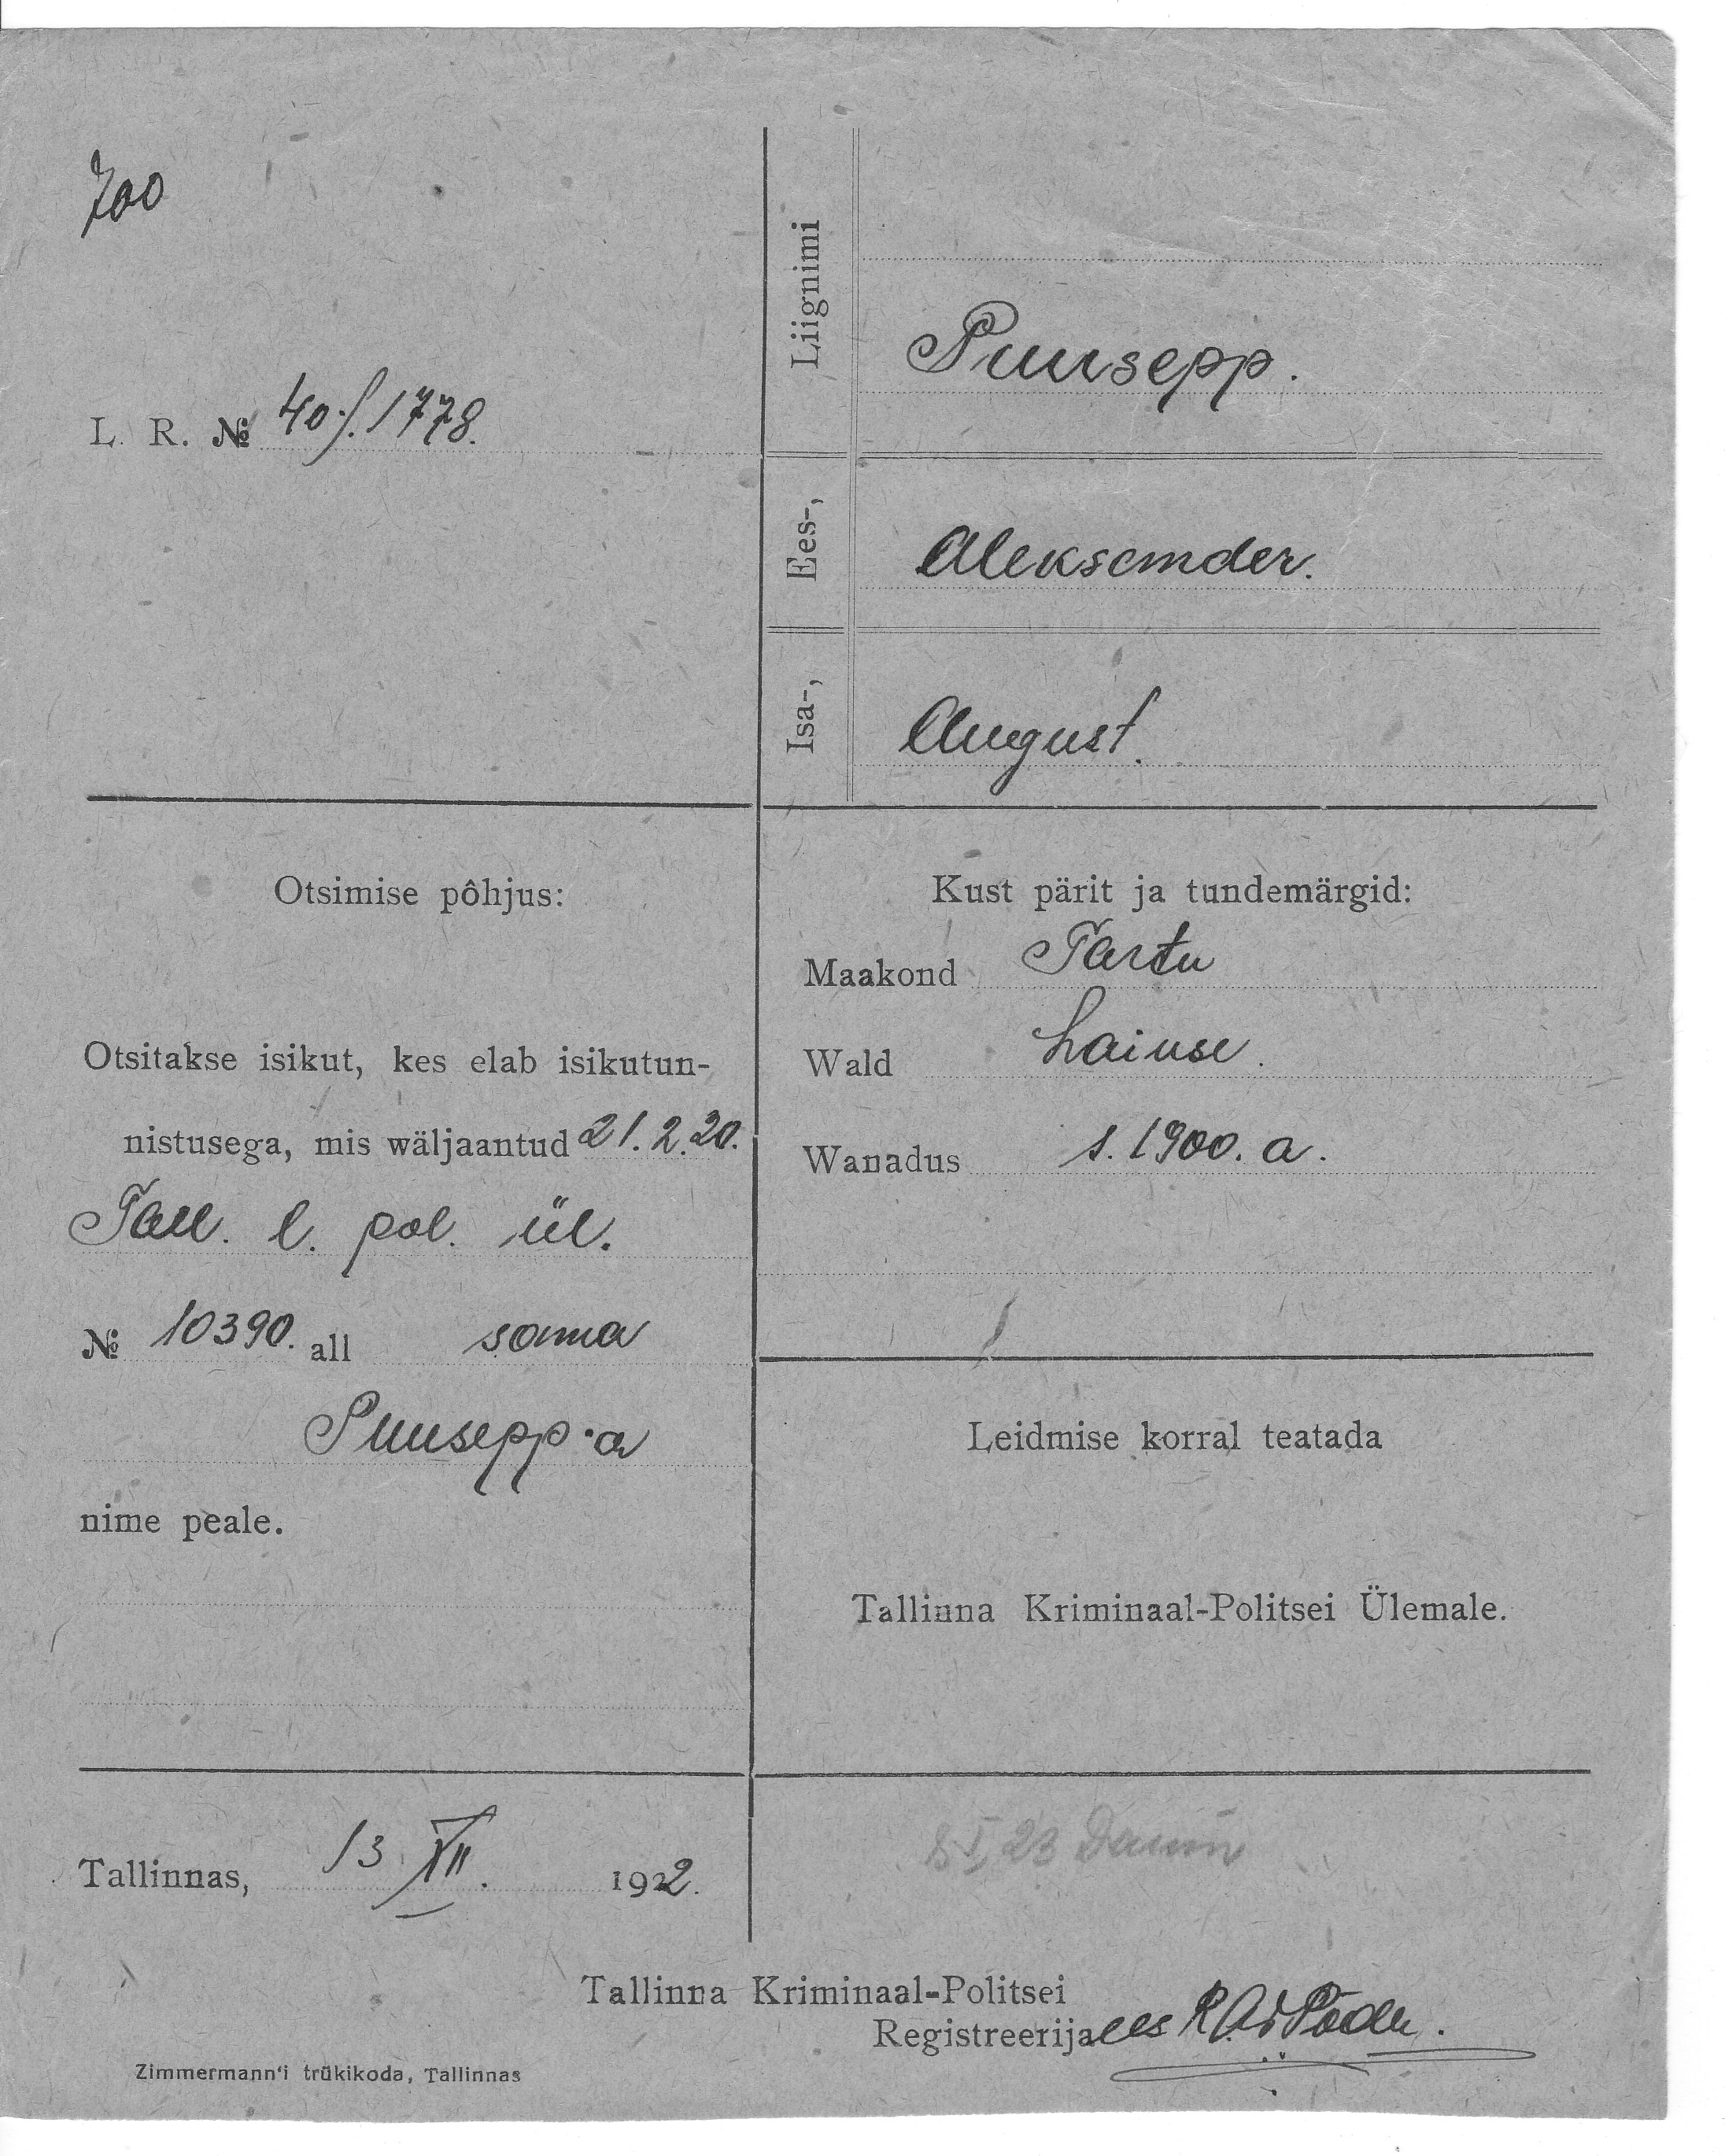 700
L. R. № 40/. 1778.
Liignimi
Puusepp.
Ees-,
Aleksander.
Isa-,
August.
Otsimise põhjus:
Otsitakse isikut, kes elab isikutun-
nistusega, mis wäljaantud 21.2.20.
Tall. l. pol. ül.
№ 10390. all sama
Puusepp·a
nime peale.
Kust pärit ja tundemärgid:
Maakond Tartu
Wald Laiuse.
Wanadus s. 1900. a.
Leidmise korral teatada
Tallinna Kriminaal-Politsei Ülemale.
Tallinnas, 13 XII. 1922.
23
Tallinna Kriminaal-Politsei
Registreerija
Zimmermann'i trükikoda, Tallinnas